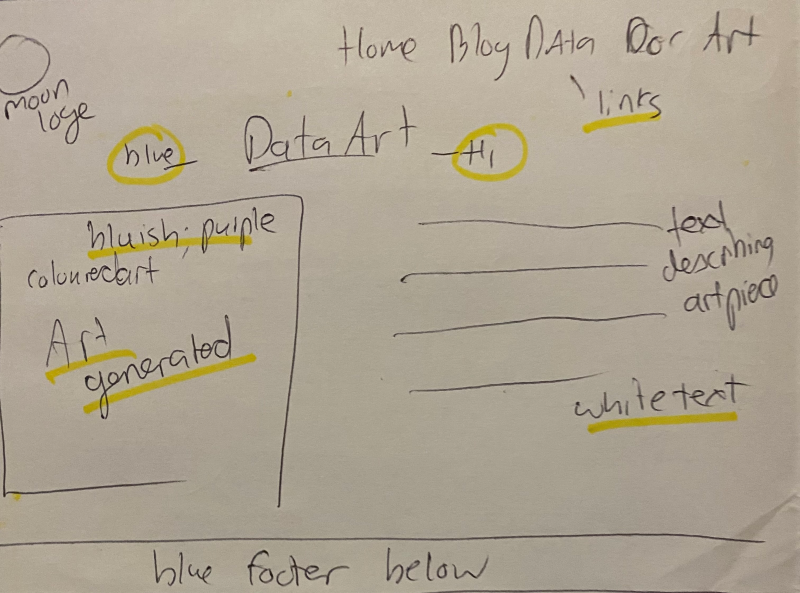 Home Blog DAta Doc Art
links
moon
loge
blue
Data Art
H1
bluish; purple
colouredart
Art
generated
text
describing
artpiece
white text
blue footer below